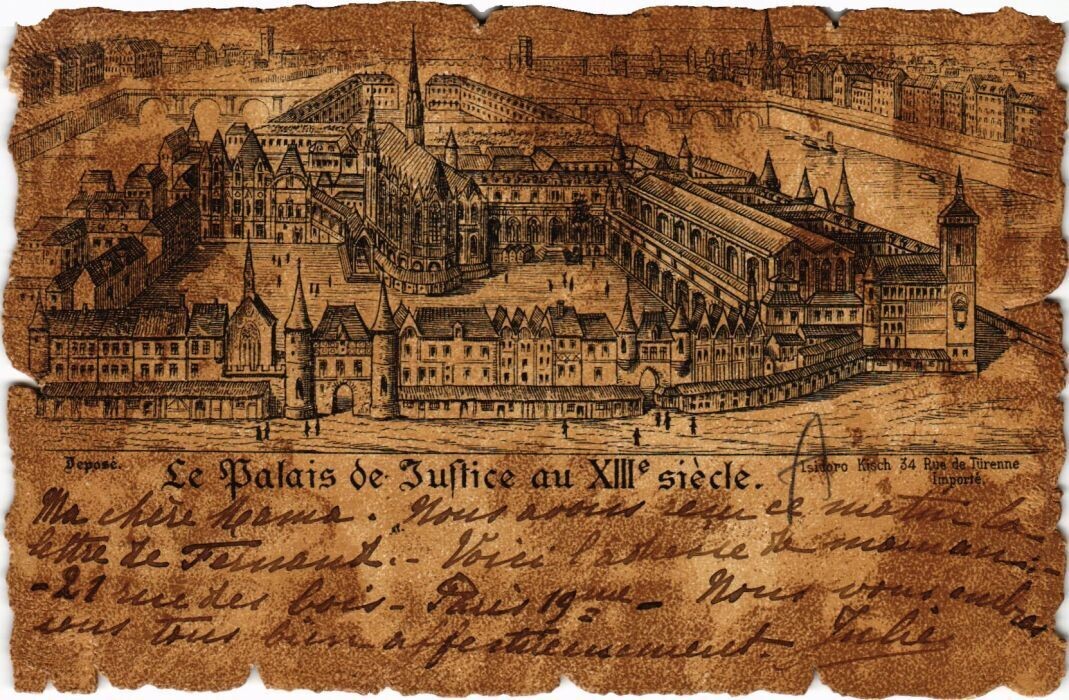 Deposé.
Le Palais de Justice au XIIIe siècle.
Isidoro Kisch 34 Rue de Türenne
Importé.
Ma chère Mama. Nous avons reçu ce matin la
lettre de Fernand. - Voici l'adresse de maman :-
- 21 rue des bois - Paris 19me - Nous vous embras
sons tous bien affectueusement. Julie